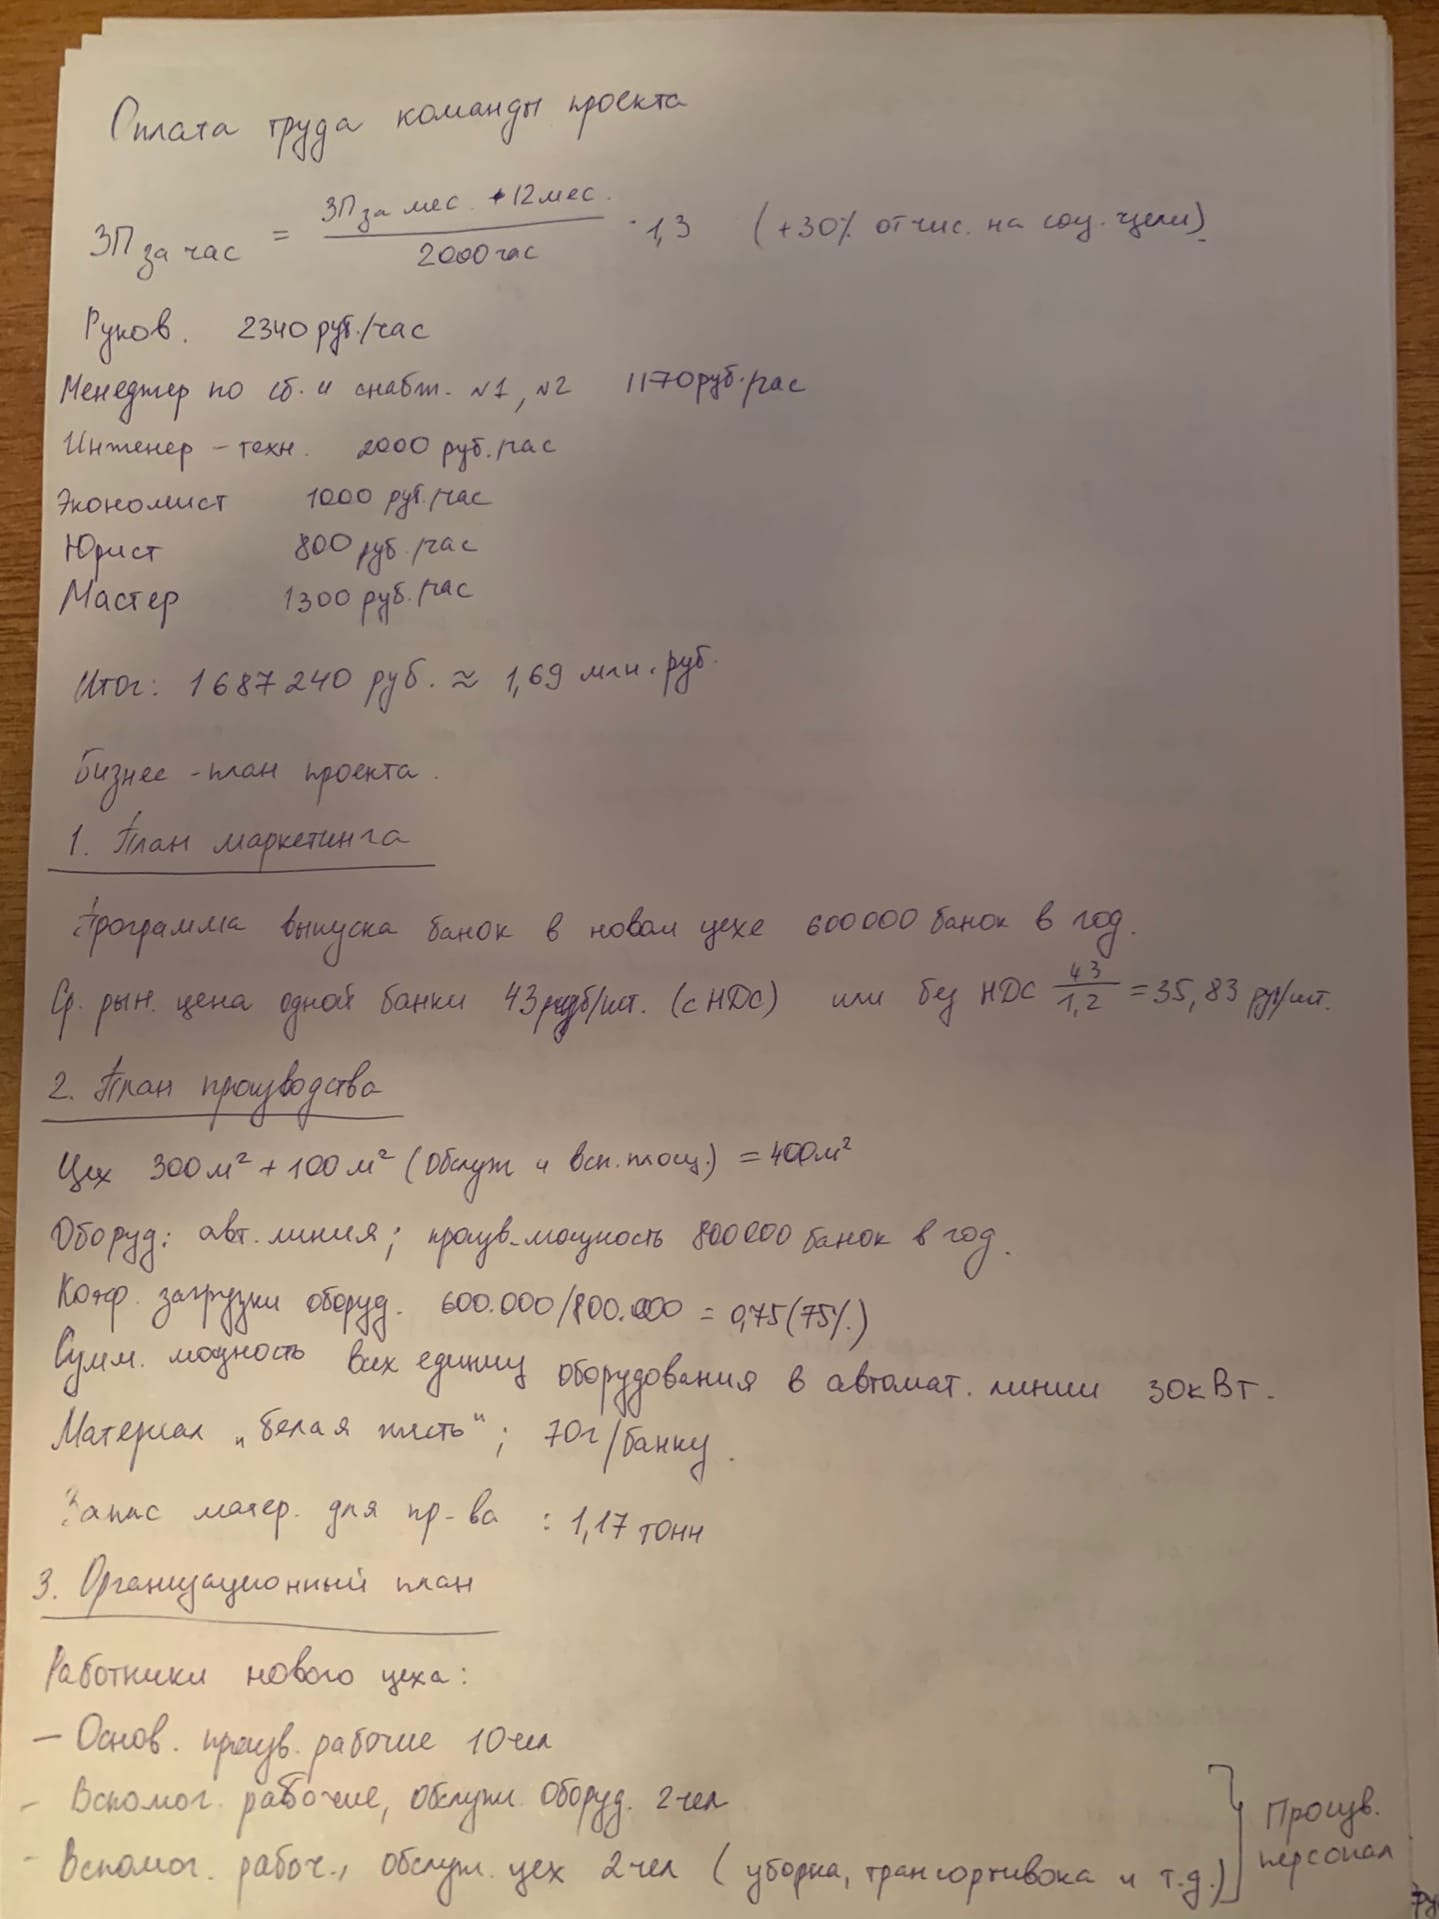 Оплата труда команды проекта
ЗП за час = ЗП за мес. · 12 мес. / 2000 час · 1,3 (+30% отчис. на соц. цели)
Руков. 2340 руб./час
Менеджер по сб. и снабж. №1, №2 1170 руб./час
Инженер – техн. 2000 руб./час
Экономист 1000 руб./час
Юрист 800 руб./час
Мастер 1300 руб./час
Итог: 1687240 руб. ≈ 1,69 млн. руб.
Бизнес - план проекта.
1. План маркетинга
Программа выпуска банок в новом цехе 600000 банок в год.
Ср. рын. цена одной банки 43 руб/шт. (с НДС) или без НДС 43/1,2 = 35,83 руб/шт.
2. План производства
Цех 300 м² + 100 м² (обслуж и всп. площ.) = 400 м²
Оборуд: авт. линия; произв. мощность 800000 банок в год.
Коэф. загрузки оборуд. 600.000/800.000 = 0,75 (75%)
Сумм. мощность всех единиц оборудования в автомат. линии 30 кВт.
Материал „белая жесть“; 70г/банку.
Запас матер. для пр-ва : 1,17 тонн
3. Организационный план
Работники нового цеха:
– Основ. произв. рабочие 10 чел
– Вспомог. рабочие, обслуж. оборуд. 2 чел
– Вспомог. рабоч., обслуж. цех 2 чел (уборка, транспортивока и т.д.)
Произв.
персонал